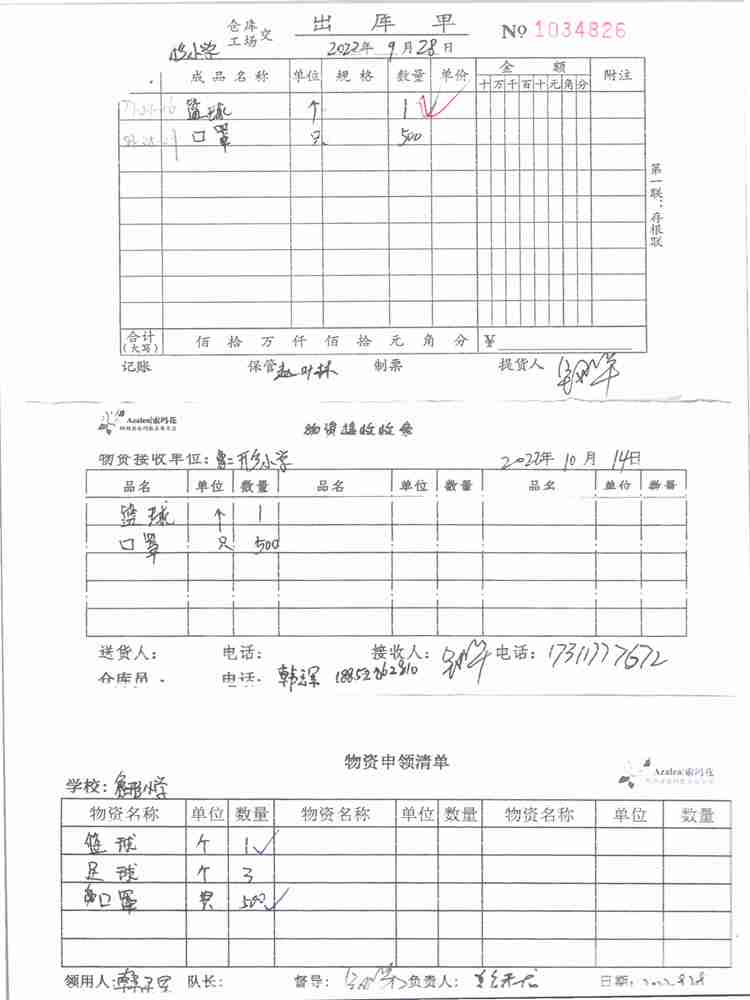 仓库 出库单 № 1034826
工场 交
小学 2022年9月28日
成品名称 单位 规格 数量 单价 金额 附注
十万千百十元角分
篮球 个 1
口罩 只 500
第一联：存根联
合计（大写） 佰 拾 万 仟 佰 拾 元 角 分 ¥
记账 保管 赵叶林 制票 提货人
Azalea 索玛花
物资接收收条
物资接收单位： 小学 2022年10月14日
品名 单位 数量 品名 单位 数量 品名 单位 数量
篮球 个 1
口罩 只 500
送货人： 电话： 接收人： 电话：17311777672
仓库员： 电话：
物资申领清单
Azalea 索玛花
学校： 小学
物资名称 单位 数量 物资名称 单位 数量 物资名称 单位 数量
篮球 个 1
足球 个 3
口罩 500
领用人： 队长： 督导： 负责人： 日期：